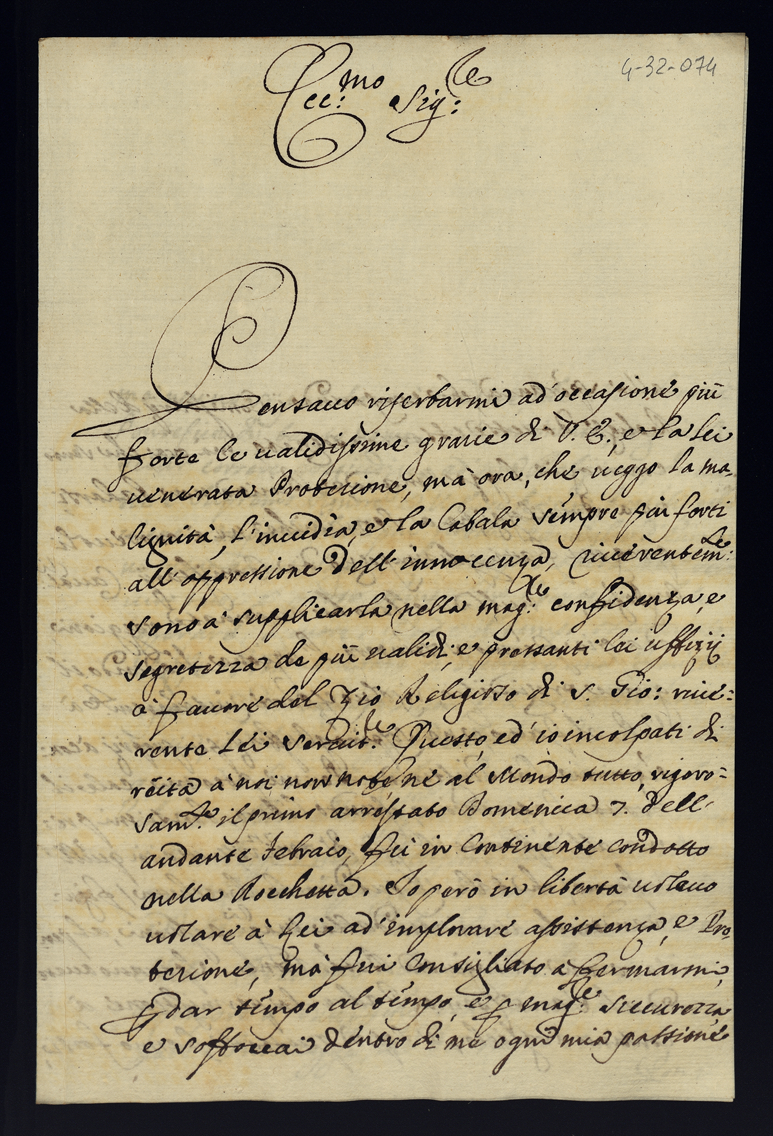 4-32-074
Ecc:mo Sig:re
Pensavo riserbarmi ad' occasione più
forte le validissime grazie di V. E., e la Lei
venerata Protezione, mà ora, che veggo la ma-
lignità, l'invidia, e la Cabala sempre più forti
all'oppressione dell'innocenza, riverentem:te
sono à supplicarla nella mag:re confidenza, e
segretezza de più validi, e pressanti lei uffizij
à favore del Zio Religioso di S. Gio: rive=
rente Lei Servit:re Questo, ed' io incolpati di
reità à noi non note, nè al Mondo tutto, rigoro=
sam:te il primo arrestato Domenica 7. dell'
andante Febraio, fù in continente condotto
nella Rocchetta. Io però in libertà volevo
volare à Lei ad' implorare assistenza, e Pro-
tezione, mà fui consigliato à fermarmi,
p dar tempo al tempo, e p mag:re sicurezza
e soffocai dentro di me ogni mia passione